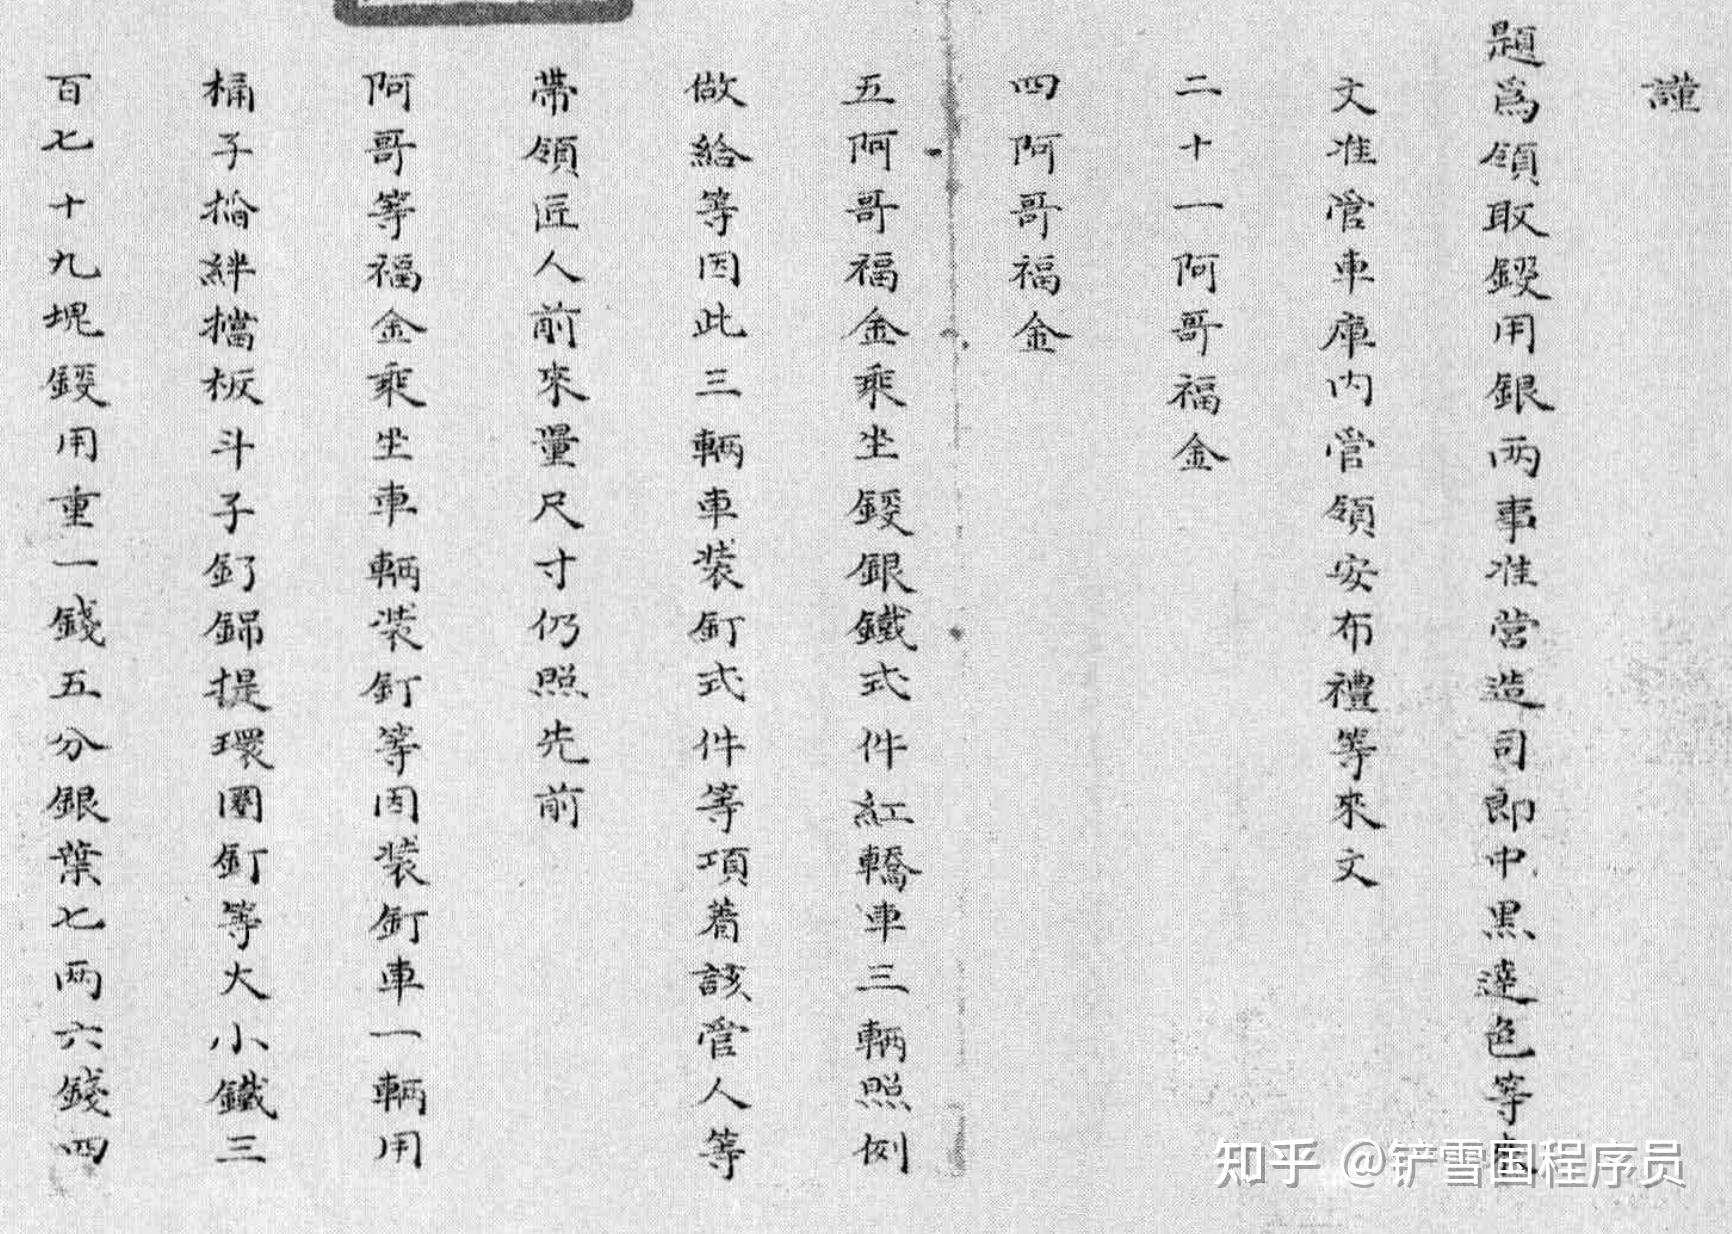 謹
題為領取鋄用銀两事准營造司郎中黒達色等來
文准管車庫内管領安布禮等來文
二十一阿哥福金
四阿哥福金
五阿哥福金乘坐鋄銀鐵式件紅轎車三輛照例
做給等因此三輛車装釘式件等項著該管人等
帶領匠人前來量尺寸仍照先前
阿哥等福金乘坐車輛装釘等因装釘車一輛用
桶子絆擋板斗子釕錦提環圈釘等大小鐵三
百七十九塊鋄用重一錢五分銀葉七两六錢四
知乎 @铲雪国程序员